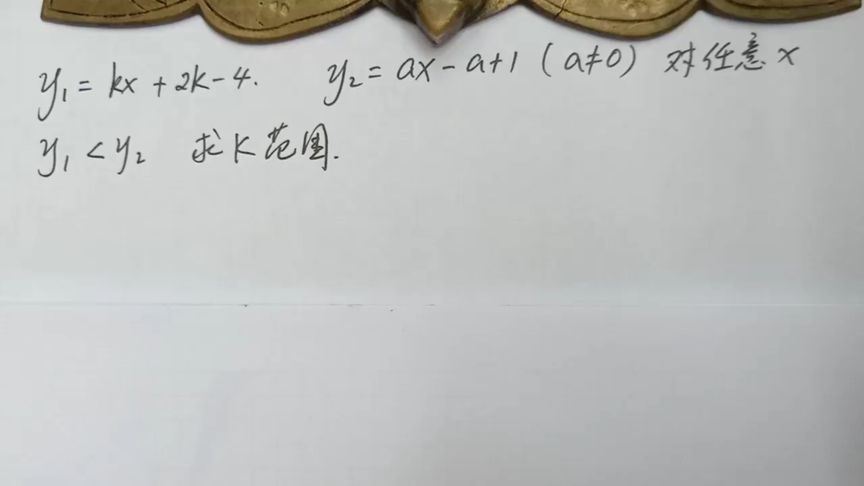 y₁ = kx + 2k - 4. y₂ = ax - a + 1 (a ≠ 0) 对任意 x
y₁ < y₂ 求 K 范围.